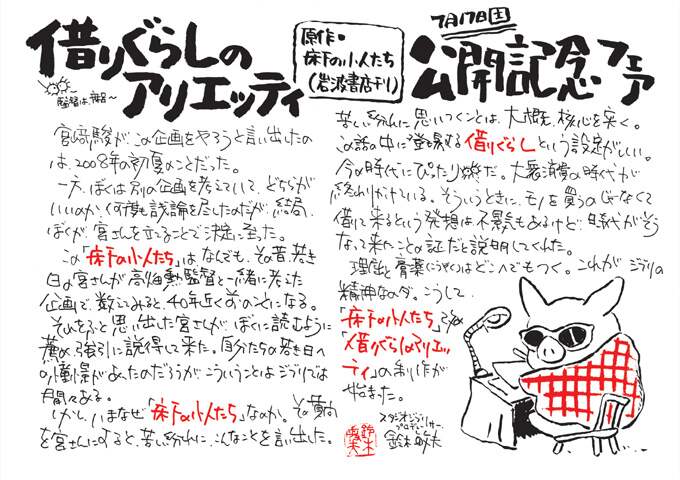 借りぐらしの
アリエッティ
監督は麻呂〜
原作・
床下の小人たち
(岩波書店刊)
7月17日土
公開記念フェア
宮崎駿がこの企画をやろうと言い出したの
は、2008年の初夏のことだった。
一方、ぼくは別の企画を考えていて、どちらが
いいのか、何度も議論を尽したのだが、結局、
ぼくが、宮さんを立てることで決定に至った。
この「床下の小人たち」は なんでも、その昔、若き
日の宮さんが高畑勲監督と一緒に考えた
企画で、数えてみると、40年近く前のことになる。
それをふと思い出した宮さんが、ぼくに読むように
薦め、強引に説得して来た。自分たちの若き日へ
の憧憬があったのだろうが、こういうことはジブリでは
間々ある。
しかし、いまなぜ「床下の小人たち」なのか。その質問
を宮さんにすると、苦し紛れに、こんなことを言い出した。
苦し紛れに思いつくことは、大概、核心を突く。
この話の中に登場する借りぐらしという設定がいい。
今の時代にぴったりだ。大衆消費の時代が
終わりかけている。そういうときに、モノを買うのじゃなくて
借りて来るという発想は、不景気もあるけど、時代がそう
なって来たことの証だと説明してくれた。
理屈と膏薬(こうやく)はどこへでもつく。これが ジブリの
精神なのダ。こうして、
「床下の小人たち」改め
「借りぐらしのアリエッ
ティ」の制作が
始まった。
スタジオジブリ
プロデューサー
鈴木敏夫
鈴木
敏夫